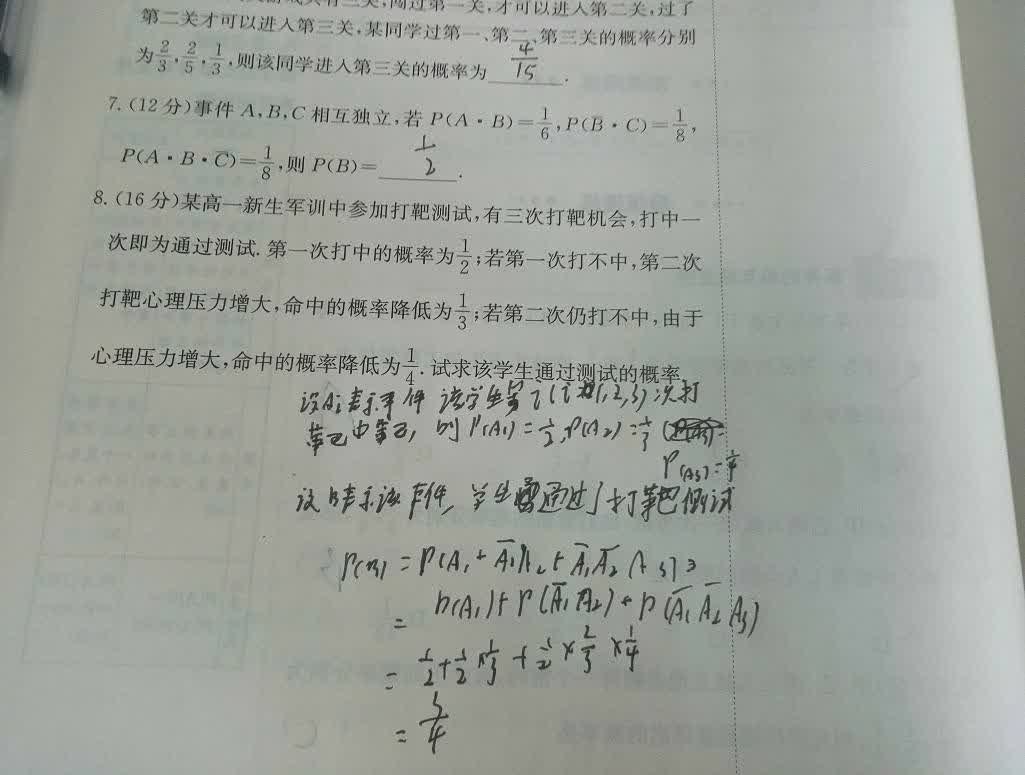 关,闯过第一关,才可以进入第二关,过了
第二关才可以进入第三关,某同学过第一、第二、第三关的概率分别
为2/3,2/5,1/3,则该同学进入第三关的概率为 4/15 .
7.(12分)事件A,B,C相互独立,若P(A·B)=1/6,P(B·C)=1/8,
P(A·B·C̅)=1/8,则P(B)= 1/2 .
8.(16分)某高一新生军训中参加打靶测试,有三次打靶机会,打中一
次即为通过测试.第一次打中的概率为1/2;若第一次打不中,第二次
打靶心理压力增大,命中的概率降低为1/3;若第二次仍打不中,由于
心理压力增大,命中的概率降低为1/4.试求该学生通过测试的概率.
设Ai表示事件 该学生第i(i=1,2,3)次打
靶中靶,则P(A1)=1/2,P(A2)=1/3
P(A3)=1/4
设B表示该事件,学生通过了打靶测试
P(B)=P(A1+A̅1A2+A̅1A̅2A3)=
=P(A1)+P(A̅1A2)+P(A̅1A̅2A3)
=1/2+1/2×1/3+1/2×2/3×1/4
=3/4